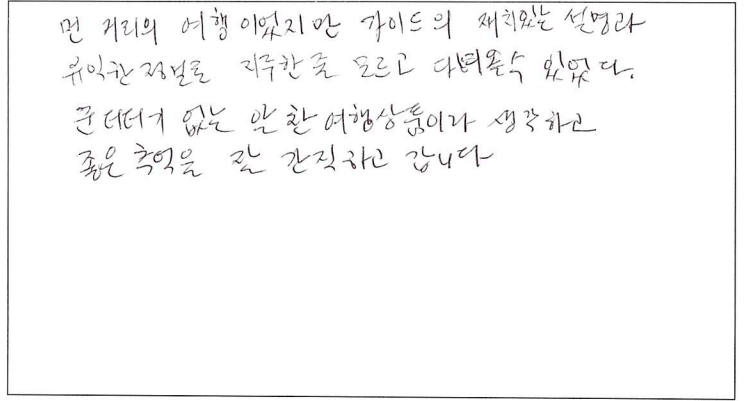 먼 거리의 여행이었지만 가이드의 재치있는 설명과
유익한 정보로 지루한줄 모르고 다녀올수 있었다.
군더더기 없는 알찬여행상품이라 생각하고
좋은 추억을 잘 간직하고 갑니다